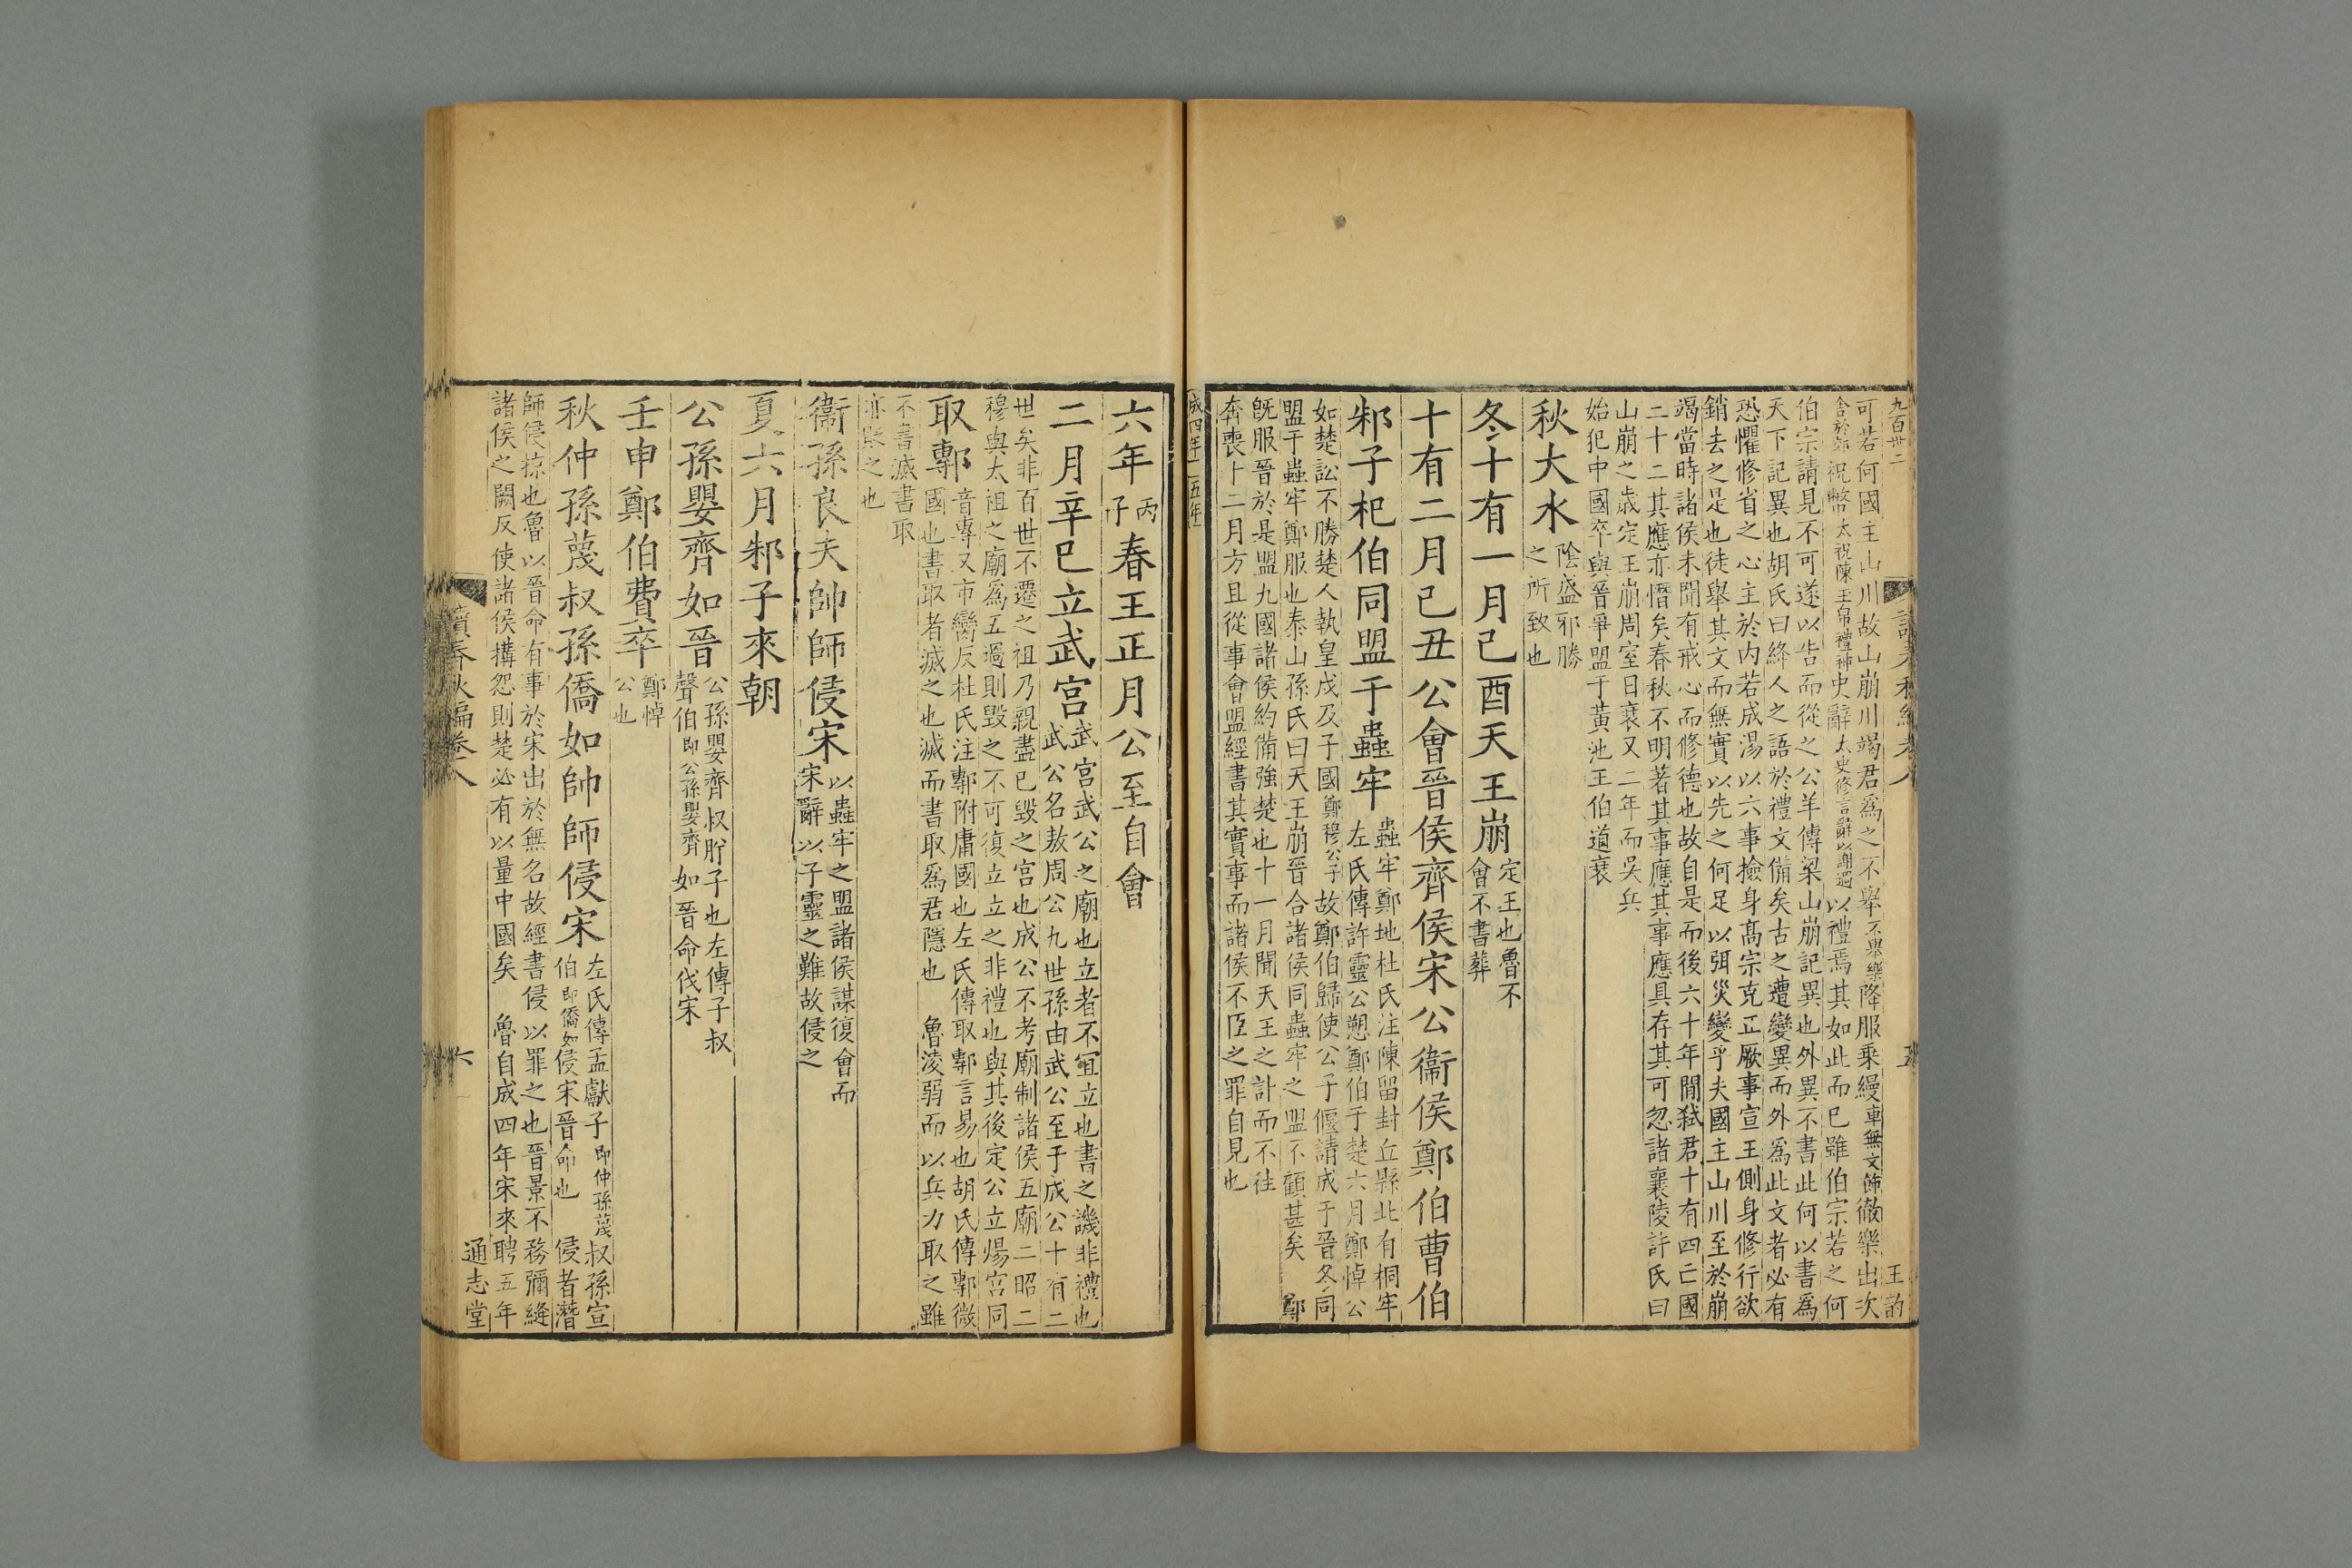 九百卅二
可若何國主山川故山崩川竭君爲之不舉不舉樂降服乘縵車無文飾徹樂出次
舍於郊祝幣太祝陳玉帛禮神史辭太史修言辭以謝過以禮焉其如此而已雖伯宗若之何
伯宗請見不可遂以告而從之公羊傳梁山崩記異也外異不書此何以書爲
天下記異也胡氏曰絳人之語於禮文備矣古之遭變異而外爲此文者必有
恐懼修省之心主於内若成湯以六事撿身髙宗克正厥事宣王側身修行欲
銷去之是也徒舉其文而無實以先之何足以弭災變乎夫國主山川至於崩
竭當時諸侯未聞有戒心而修德也故自是而後六十年閒弑君十有四亡國
二十二其應亦憯矣春秋不明著其事應其事應具存其可忽諸襄陵許氏曰
山崩之歲定王崩周室日衰又二年而吳兵
始犯中國卒與晉爭盟于黃池王伯道衰
秋大水
陰盛邪勝
之所致也
冬十有一月己酉天王崩
定王也魯不
會不書葬
十有二月己丑公會晉侯齊侯宋公衞侯鄭伯曹伯
邾子杞伯同盟于蟲牢
蟲牢鄭地杜氏注陳留封丘縣北有桐牢
左氏傳許靈公愬鄭伯于楚六月鄭悼公
如楚訟不勝楚人執皇戌及子國鄭穆公子故鄭伯歸使公子偃請成于晉冬同
盟于蟲牢鄭服也泰山孫氏曰天王崩晉合諸侯同蟲牢之盟不顧甚矣 鄭
旣服晉於是盟九國諸侯約備強楚也十一月聞天王之訃而不往
奔喪十二月方且從事會盟經書其實事而諸侯不臣之罪自見也
成四年 五年
六年
丙
子
春王正月公至自會
二月辛巳立武宮
武宮武公之廟也立者不宜立也書之譏非禮也
武公名敖周公九世孫由武公至于成公十有二
世矣非百世不遷之祖乃親盡已毀之宮也成公不考廟制諸侯五廟二昭二
穆與太祖之廟爲五過則毀之不可復立立之非禮也與其後定公立煬宮同
取鄟
音專又市臠反杜氏注鄟附庸國也左氏傳取鄟言易也胡氏傳鄟微
國也書取者滅之也滅而書取爲君隱也 魯淩弱而以兵力取之雖
不書滅書取
亦
之也
衞孫良夫帥師侵宋
以蟲牢之盟諸侯謀復會而
宋辭以子靈之難故侵之
夏六月邾子來朝
公孫嬰齊如晉
公孫嬰齊叔肸子也左傳子叔
聲伯即公孫嬰齊如晉命伐宋
壬申鄭伯費卒
鄭悼
公也
秋仲孫蔑叔孫僑如帥師侵宋
左氏傳孟獻子即仲孫蔑叔孫宣
伯即僑如侵宋晉命也 侵者潛
師侵掠也魯以晉命有事於宋出於無名故經書侵以罪之也晉景不務彌縫
諸侯之闕反使諸侯搆怨則楚必有以量中國矣 魯自成四年宋來聘五年
讀春秋編卷八
六
通志堂